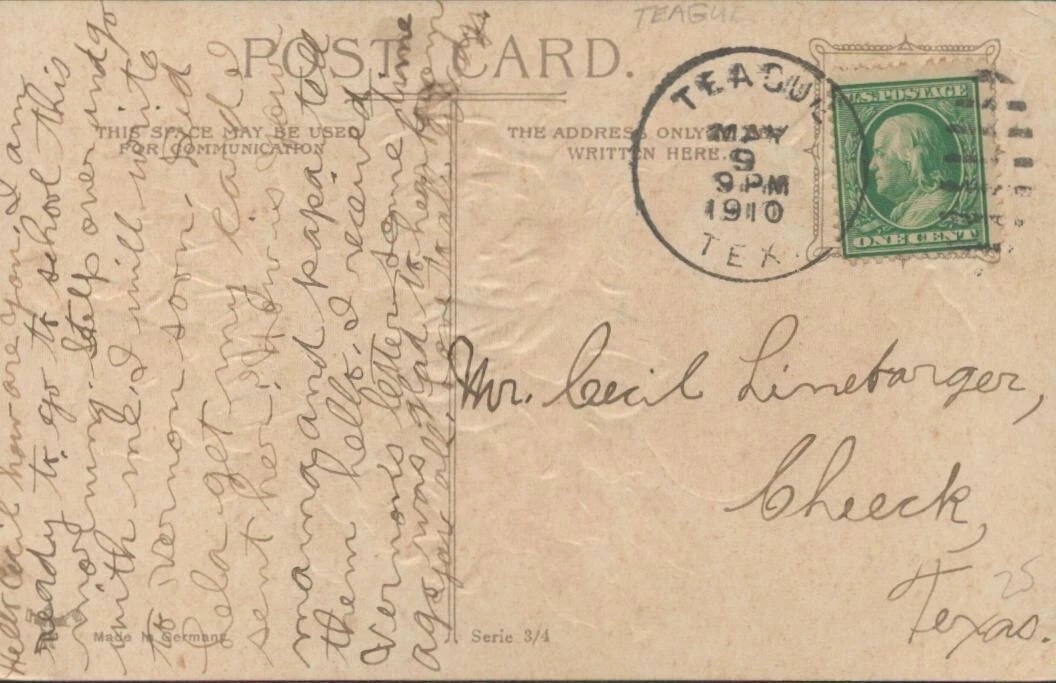 TEAGUE
POST CARD.
THIS SPACE MAY BE USED
FOR COMMUNICATION
THE ADDRESS ONLY
WRITTEN HERE.
TEAGUE
MAY
9
9 PM
1910
TEX.
U.S. POSTAGE
ONE CENT
Hello Cecil how are you. I am
ready to go to school this
morning. Step over and go
with me. I will write
to Vernon soon. Did
Lela get my card I
sent her. How is your
mama and papa. tell
them hello. I received
Vernons letter some time
ago, was glad to hear from
you all. love to all.
Mr. Cecil Linebarger,
Cheeck,
Texas.
25
Made in Germany
Serie 3/4